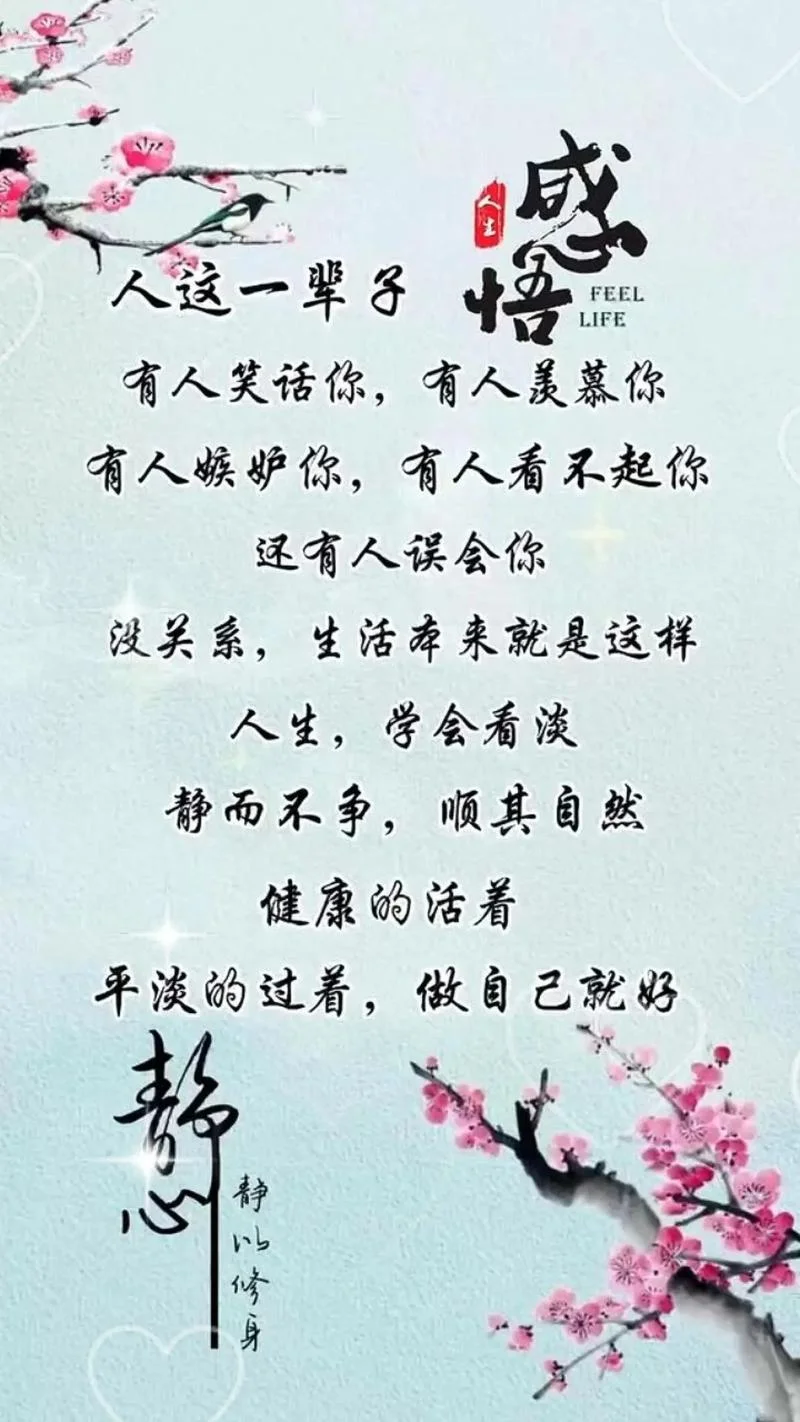 人生
感悟
FEEL
LIFE
人这一辈子
有人笑话你，有人羡慕你
有人嫉妒你，有人看不起你
还有人误会你
没关系，生活本来就是这样
人生，学会看淡
静而不争，顺其自然
健康的活着
平淡的过着，做自己就好
静心
静以修身